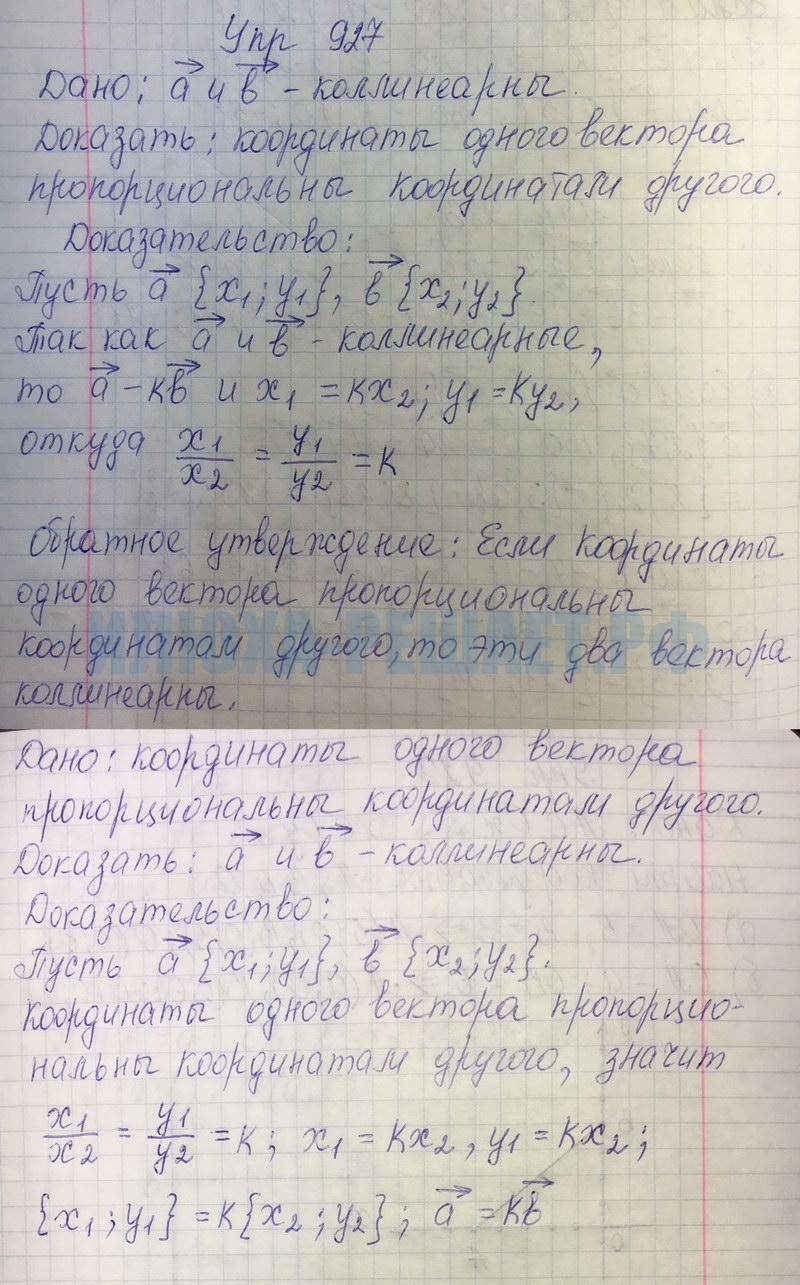 Упр 927
Дано: a⃗ и в⃗ - коллинеарны.
Доказать: координаты одного вектора
пропорциональны координатам другого.
Доказательство:
Пусть a⃗ {x₁; y₁}, в⃗ {x₂; y₂}.
Так как a⃗ и в⃗ - коллинеарные,
то a⃗ - кв⃗ и x₁ = кx₂; y₁ = кy₂,
откуда x₁/x₂ = y₁/y₂ = к
Обратное утверждение: Если координаты
одного вектора пропорциональны
координатам другого, то эти два вектора
коллинеарны.
ИЛЮХА-РЕШАЕТ.РФ
Дано: координаты одного вектора
пропорциональны координатам другого.
Доказать: a⃗ и в⃗ - коллинеарны.
Доказательство:
Пусть a⃗ {x₁; y₁}, в⃗ {x₂; y₂}.
координаты одного вектора пропорцио-
нальны координатам другого, значит
x₁/x₂ = y₁/y₂ = к; x₁ = кx₂, y₁ = кx₂;
{x₁; y₁} = к{x₂; y₂}; a⃗ = кв⃗